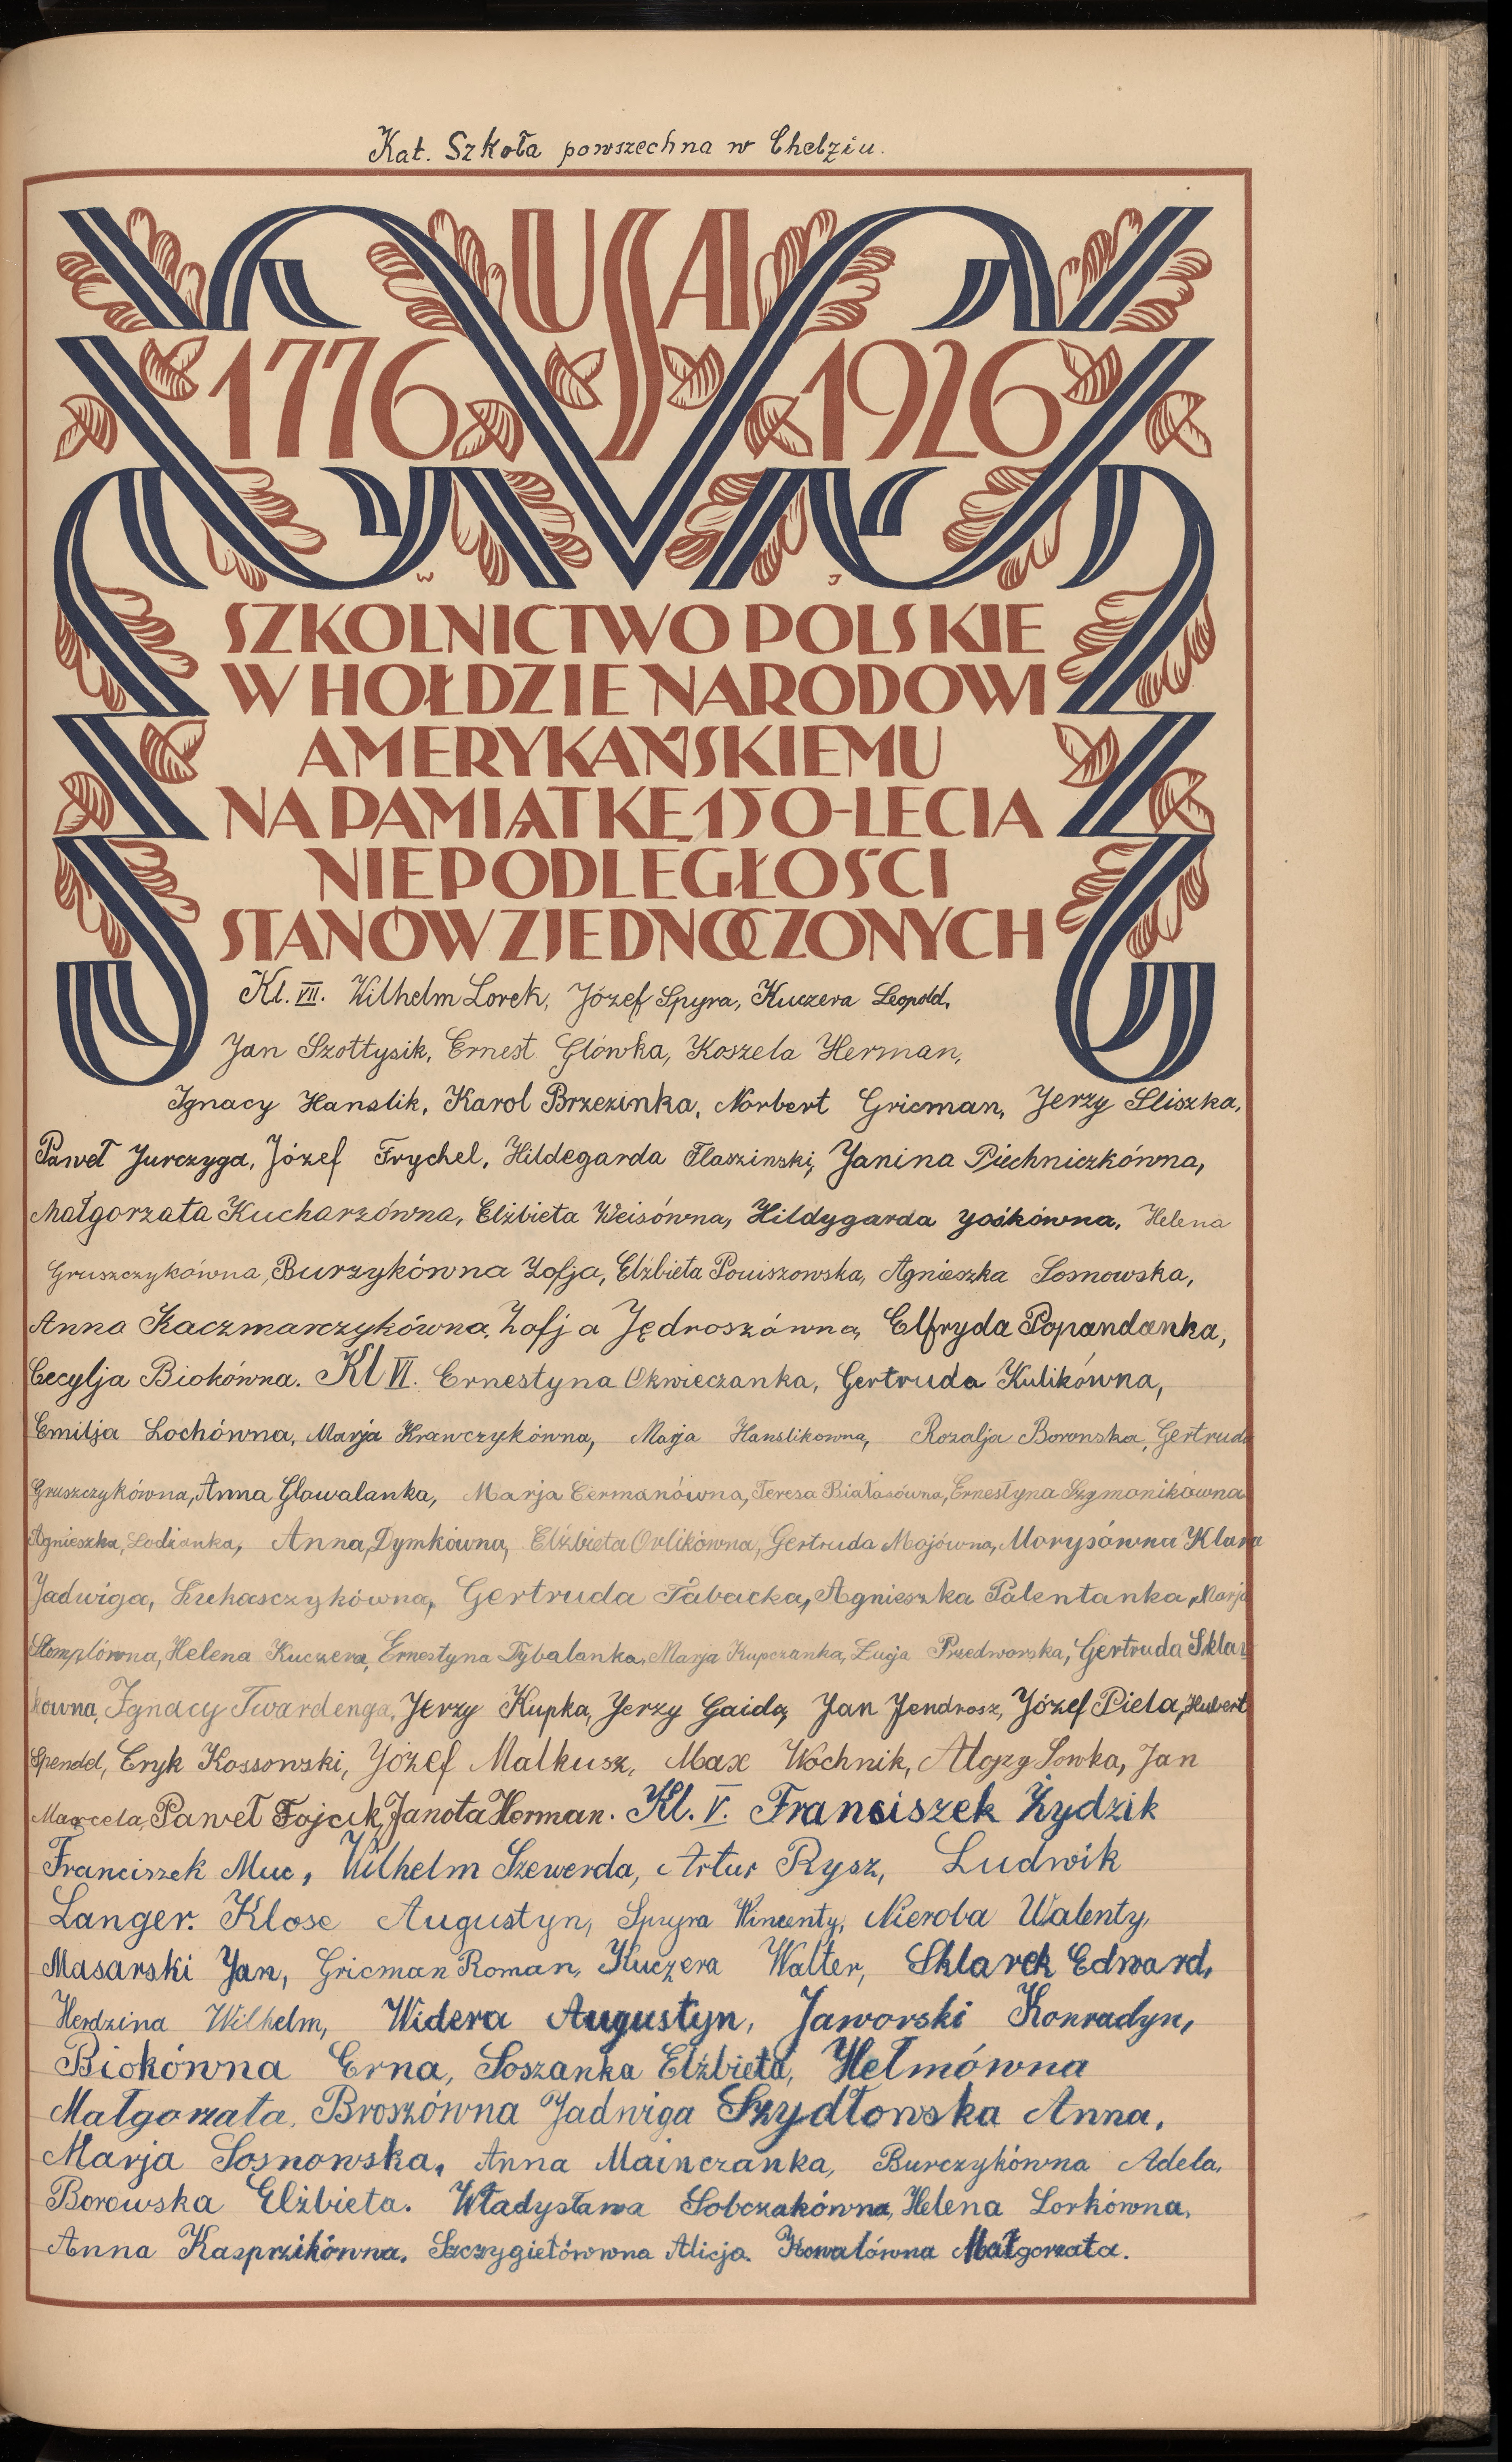 Kat. Szkoła powszechna w Chełziu.
USA
1776 1926
W J
SZKOLNICTWO POLSKIE
W HOŁDZIE NARODOWI
AMERYKAŃSKIEMU
NA PAMIĄTKĘ 150-LECIA
NIEPODLEGŁOŚCI
STANÓW ZJEDNOCZONYCH
Kl. VII. Wilhelm Lorek, Józef Spyra, Kuczera Leopold,
Jan Szołtysik, Ernest Główka, Koszela Herman,
Ignacy Hanslik, Karol Brzezinka, Norbert Gricman, Jerzy Śliszka,
Paweł Jurczyga, Józef Frychel, Hildegarda Flaszinski, Janina Piechniczkówna,
Małgorzata Kucharzówna, Elżbieta Weisówna, Hildygarda Jośkówna, Helena
Gruszczykówna, Burzykówna Zofja, Elżbieta Pouiszowska, Agnieszka Sosnowska,
Anna Kaczmarczykówna, Zofja Jędroszówna, Elfryda Popandanka,
Cecylja Biokówna. Kl VI. Ernestyna Okwieczanka, Gertruda Kulikówna,
Emilja Lochówna, Marja Krawczykówna, Marja Hanslikowna, Rozalja Boronska, Gertruda
Gruszczykówna, Anna Glowalanka, Marja Cermanówna, Teresa Białasówna, Ernestyna Szymonikówna
Agnieszka, Lodzianka, Anna, Dymkówna, Elżbieta Orlikówna, Gertruda Majówna, Morysówna Klara
Jadwiga, Kuhasczykówna, Gertruda Tabacka, Agnieszka Palentanka, Marja
Stomplówna, Helena Kuczera, Ernestyna Dybalanka, Marja Kupczanka, Łucja Przedworska, Gertruda Sklar
kowna, Ignacy Twardenga, Jerzy Kupka, Jerzy Gaida, Jan Jendrosz, Józef Piela, Hubert
Spendel, Eryk Kossowski, Józef Malkusz, Max Wochnik, Alojzy Sowka, Jan
Marcela, Paweł Fojcik, Janota Herman. Kl. V. Franciszek Żydzik
Franciszek Muc, Wilhelm Szewerda, Artur Rysz, Ludwik
Langer. Klose Augustyn, Spyra Wincenty, Nieroba Walenty,
Masarski Jan, Gricman Roman, Kuczera Walter, Sklarek Edward,
Herdzina Wilhelm, Widera Augustyn, Jaworski Konradyn,
Biokówna Erna, Soszanka Elżbieta, Hełmówna
Małgorzata, Broszówna Jadwiga Szydłowska Anna,
Marja Sosnowska, Anna Mainczanka, Burczykówna Adela,
Borowska Elżbieta. Władysława Sobczakówna, Helena Lorkówna,
Anna Kasprzikówna. Szczygiełówwna Alicja. Kowalówna Małgorzata.